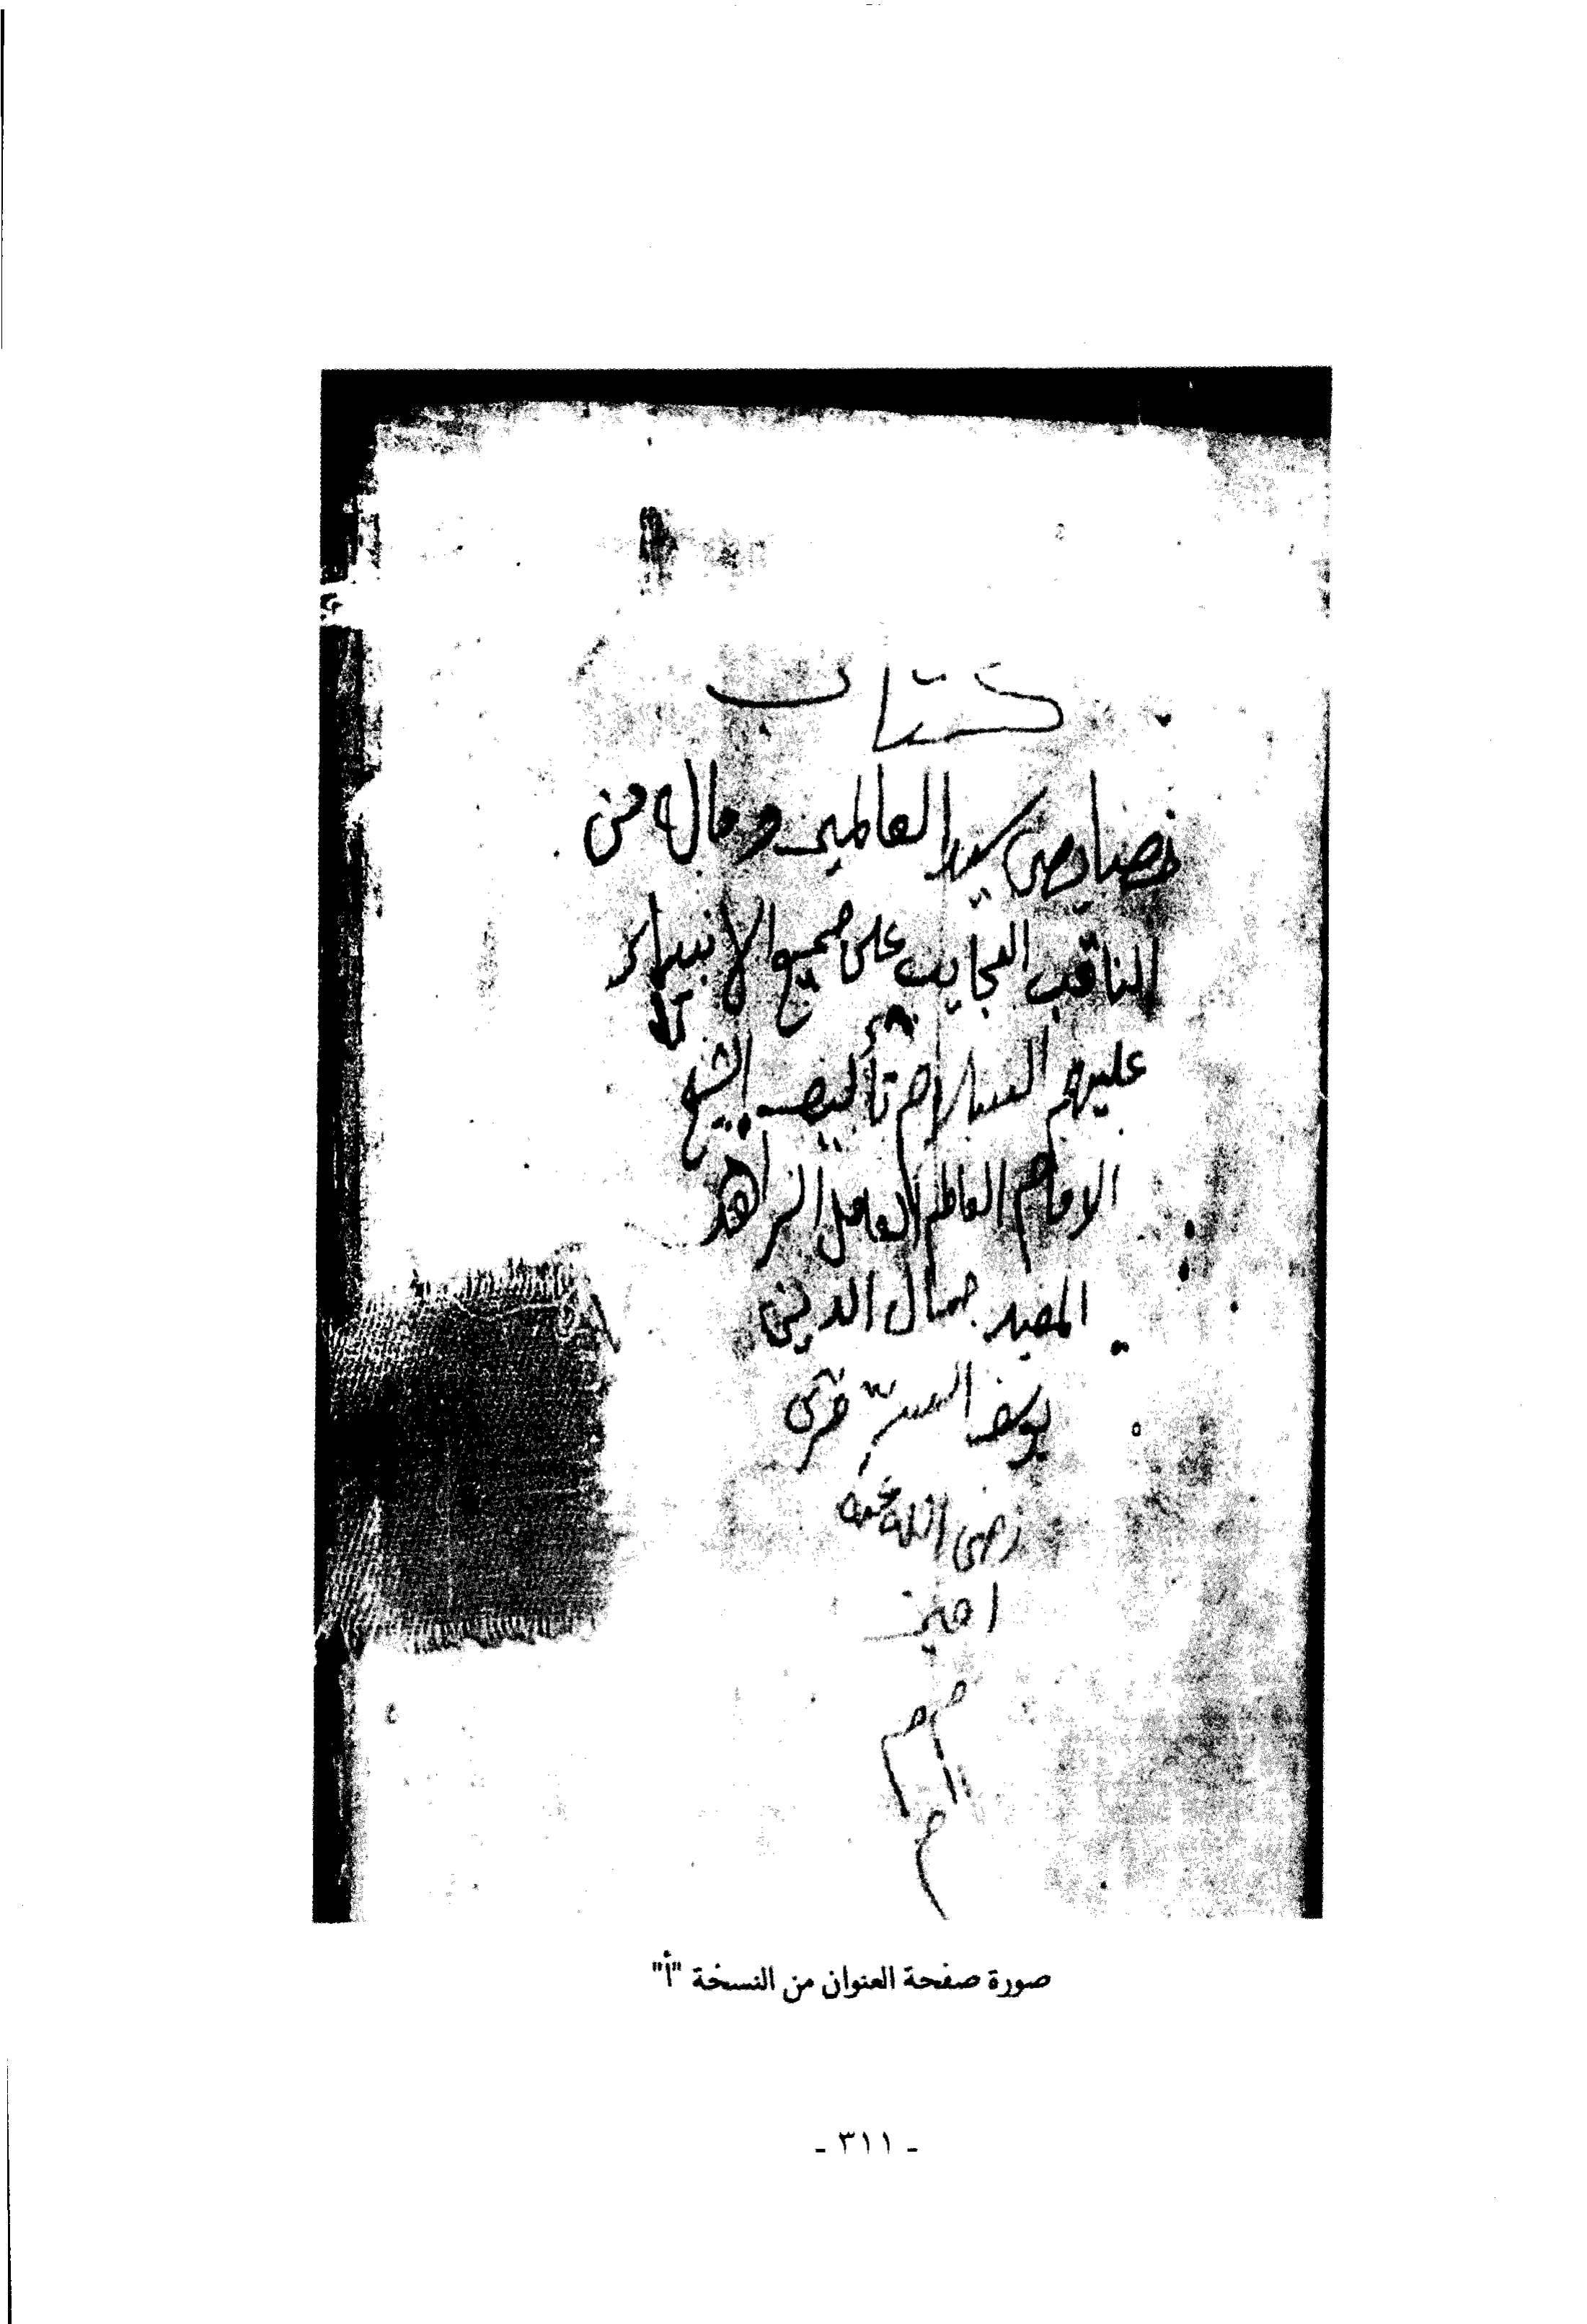 كتاب
خصايص سيد العالمين وماله من
المناقب العجايب على جميع الانبيا
عليهم السلام تأليف الشيخ
الامام العالم العامل الزاهد
المفيد جمال الدين
يوسف السرمري
رضي الله عنه
امين
م م
م
صورة صفحة العنوان من النسخة "أ"
- ٣١١ -